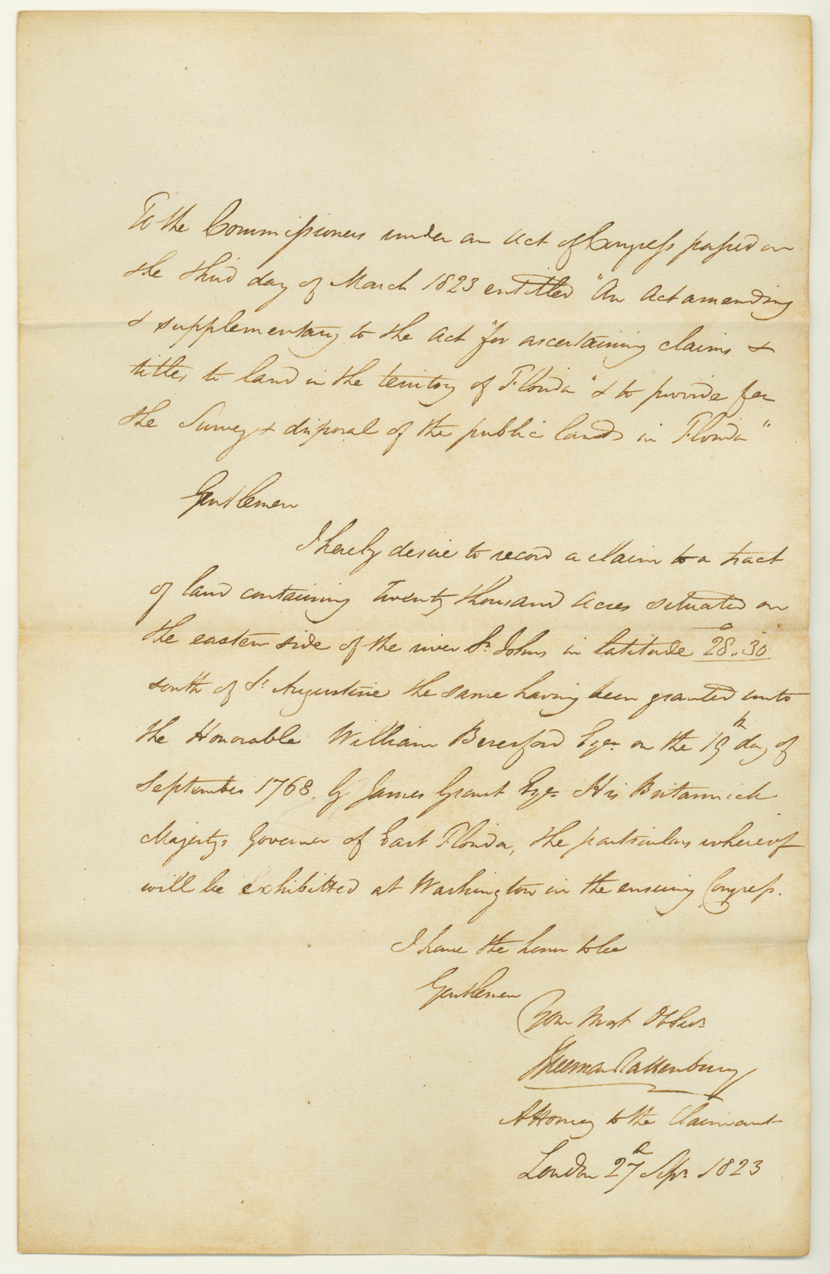 To the Commissioners under an Act of Congress passed on
the third day of March 1823 entitled "An Act amending
& supplementary to the Act "for ascertaining claims &
titles to land in the territory of Florida" & to provide for
the Survey & disposal of the public lands in Florida"
Gentlemen
I hereby desire to record a claim to a tract
of land containing Twenty thousand Acres situated on
the eastern side of the river St. Johns in latitude 28°.30
south of St. Augustine the same having been granted unto
the Honorable William Beresford Esqr. on the 19th day of
September 1768. by James Grant Esqr. His Britannick
Majestys Governor of East Florida, the particulars whereof
will be exhibitted at Washington in the ensuing Congress.
I have the honor to be
Gentlemen
Your Most Obt Servt
Freeman Rattenbury
Attorney to the Claimant
London 27th 1823